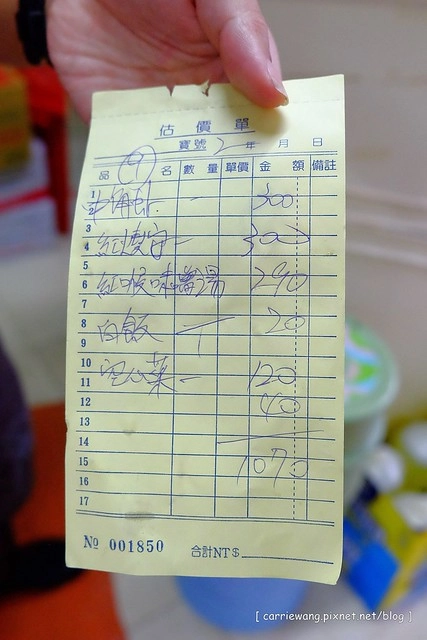 估價單
寶號 2 年 月 日
品 (9) 名 數量 單價 金額 備註
1
2 一 300
3
4 紅燒 一 300
5
6 紅喉味噌湯 290
7
8 白飯 丁 20
9
10
11 空心菜 一 120
12 40
13
14
15 1070
16
17
№ 001850 合計NT$
[ carriewang.pixnet.net/blog ]